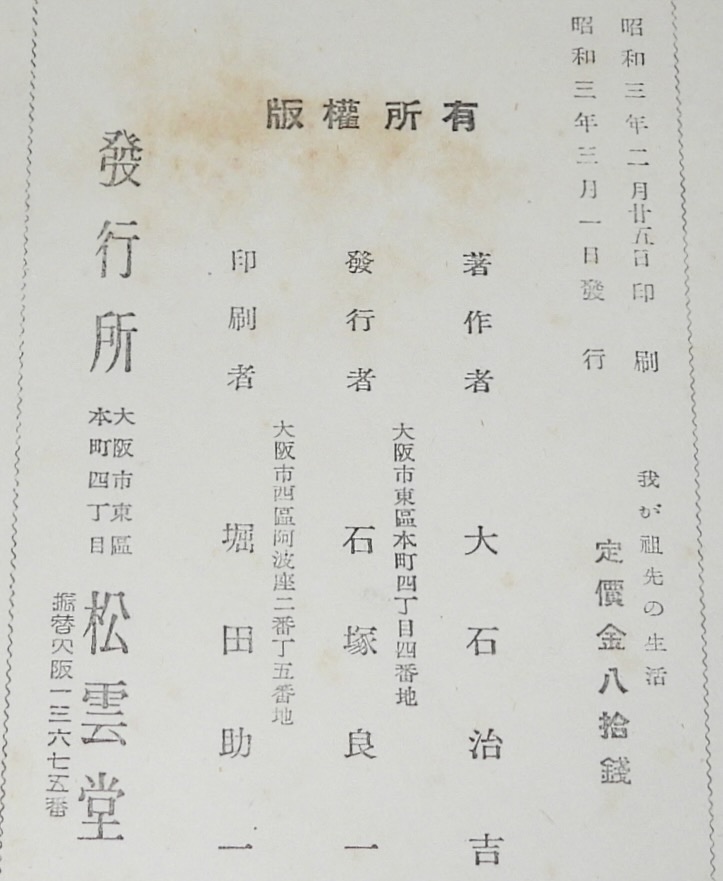 昭和三年二月廿五日印刷
昭和三年三月一日發行
我が祖先の生活
定價金八拾錢
版權所有
著作者 大石治吉
大阪市東區本町四丁目四番地
發行者 石塚良一
大阪市西區阿波座二番丁五番地
印刷者 堀田助一
發行所 大阪市東區本町四丁目 松雲堂
振替大阪一三六七五番